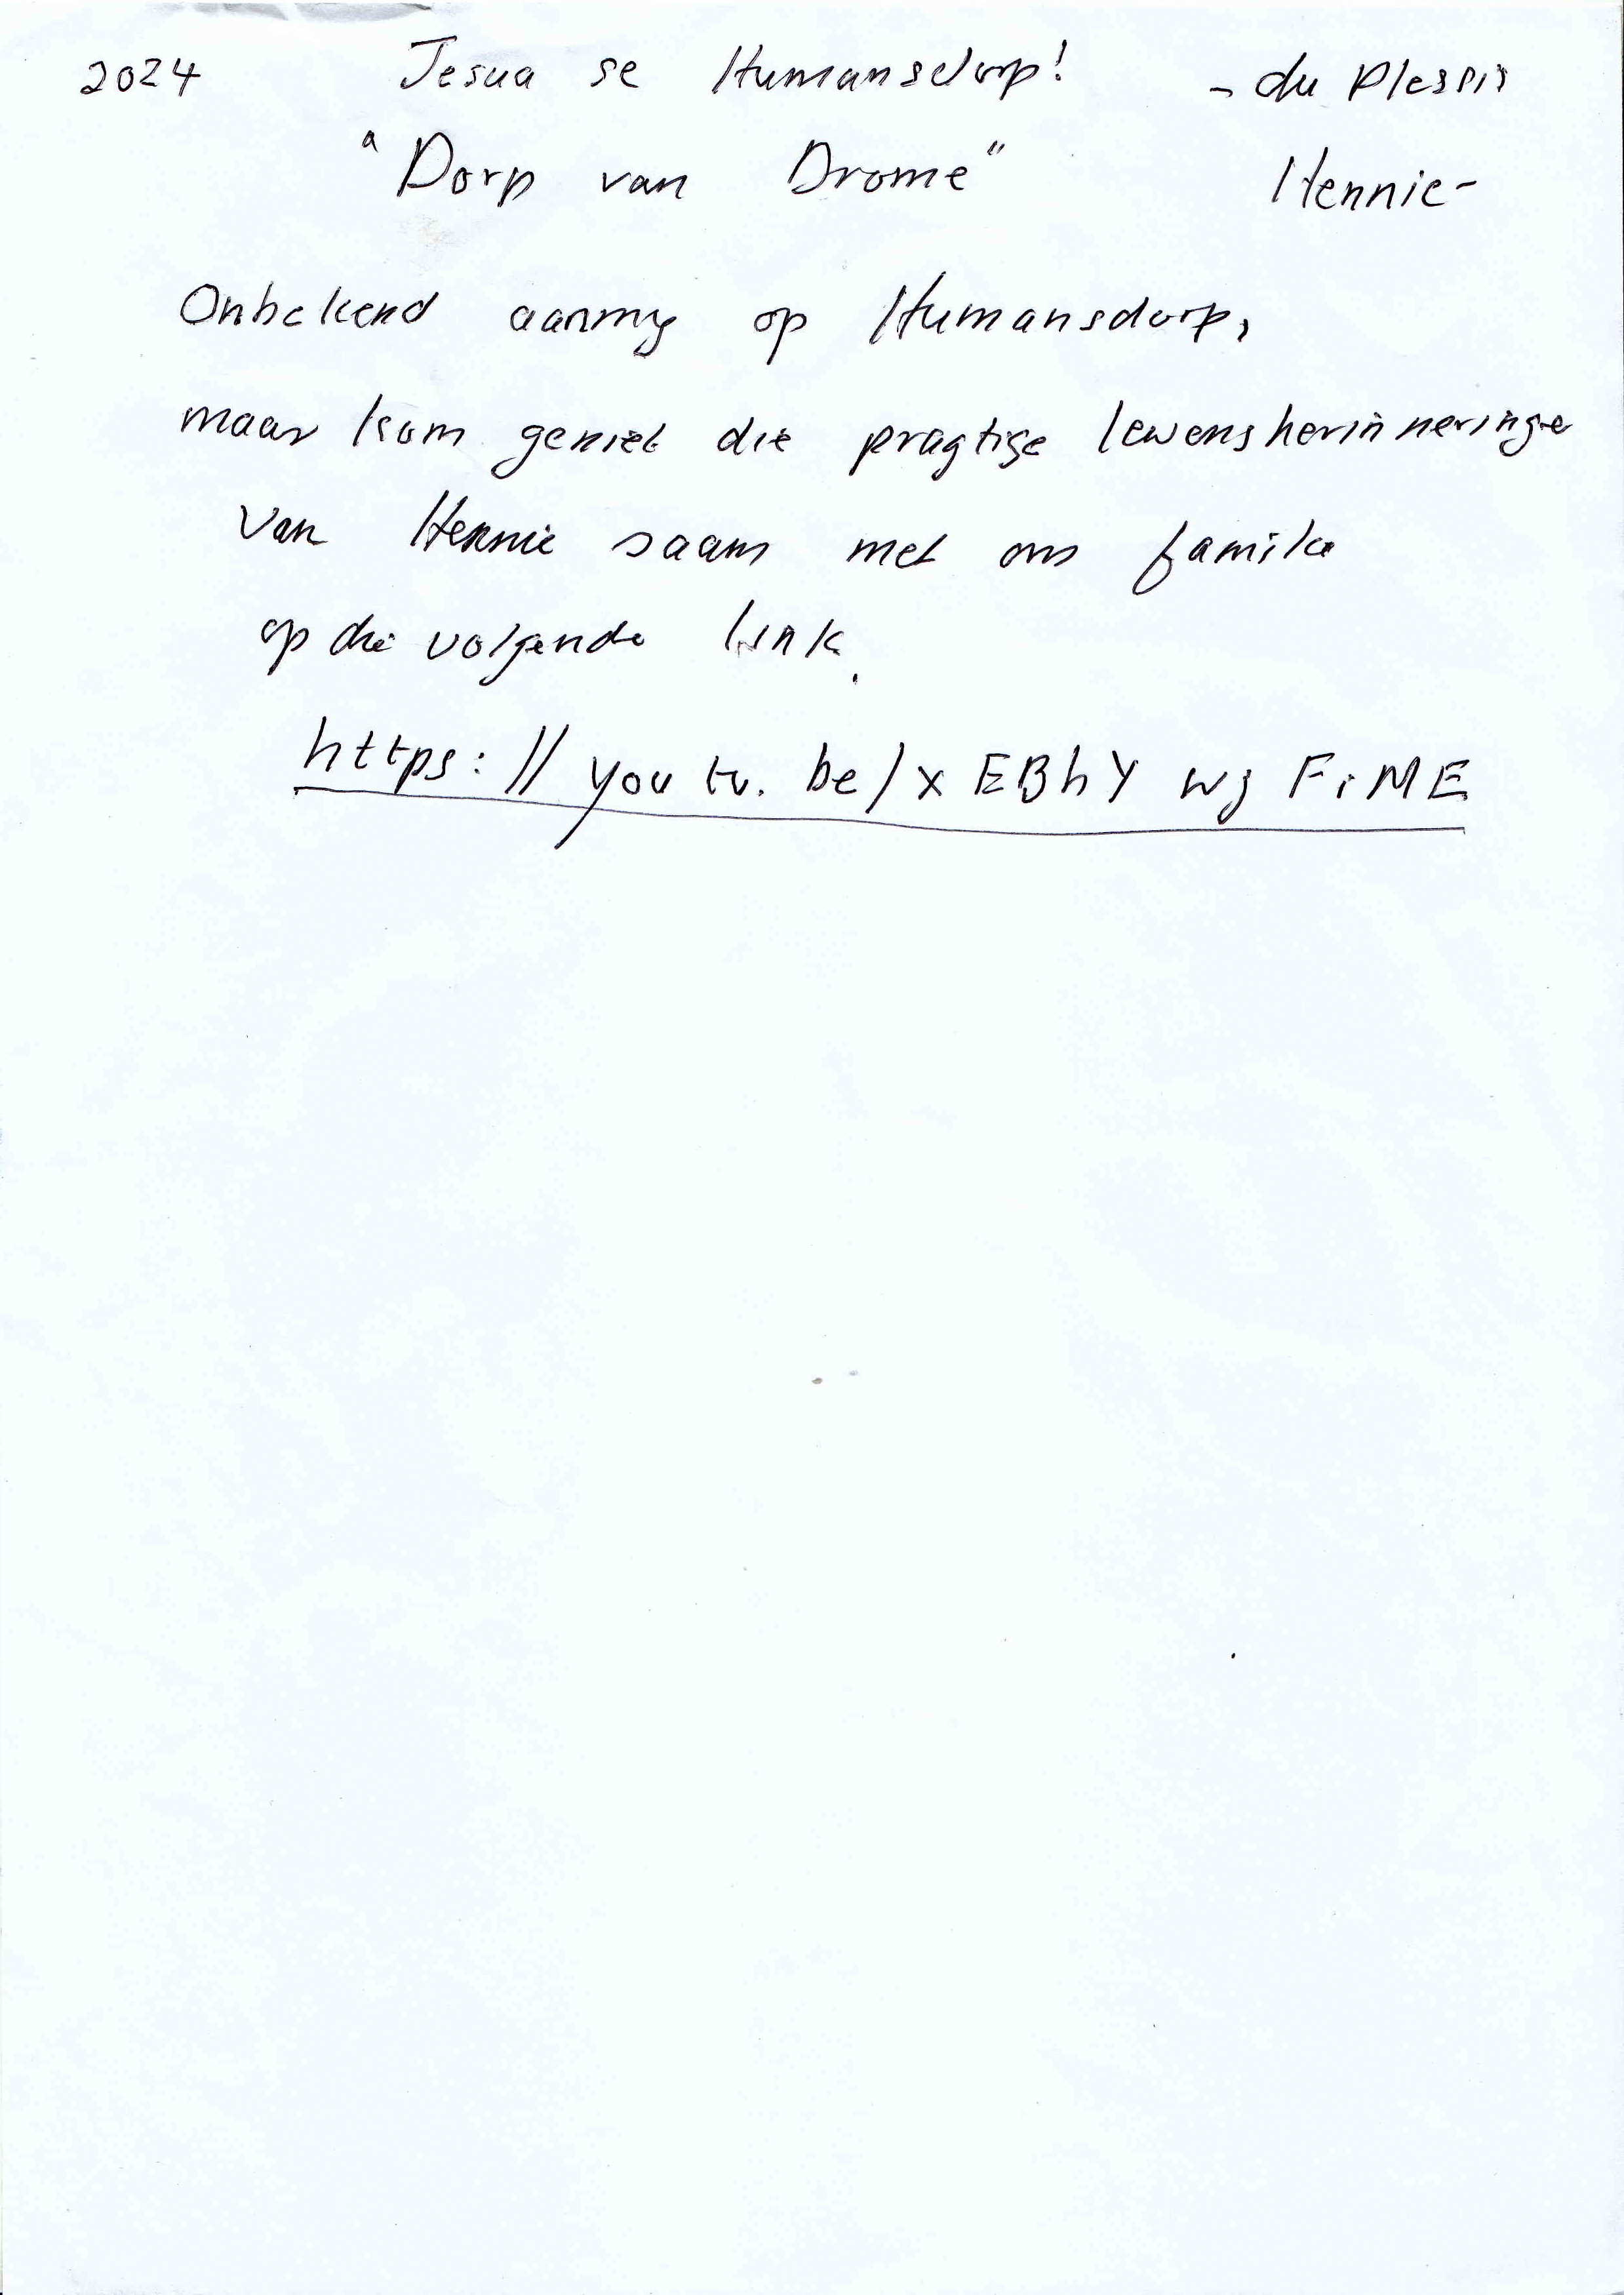 2024 Jesua se Humansdorp! - du Plessis
"Dorp van Drome" Hennie-
Onbekend aanmy op Humansdorp,
maar kom geniet die pragtige lewensherinneringe
van Hennie saam met ons familie
op die volgende link.
https://youtu.be/xEBhYwgFiME